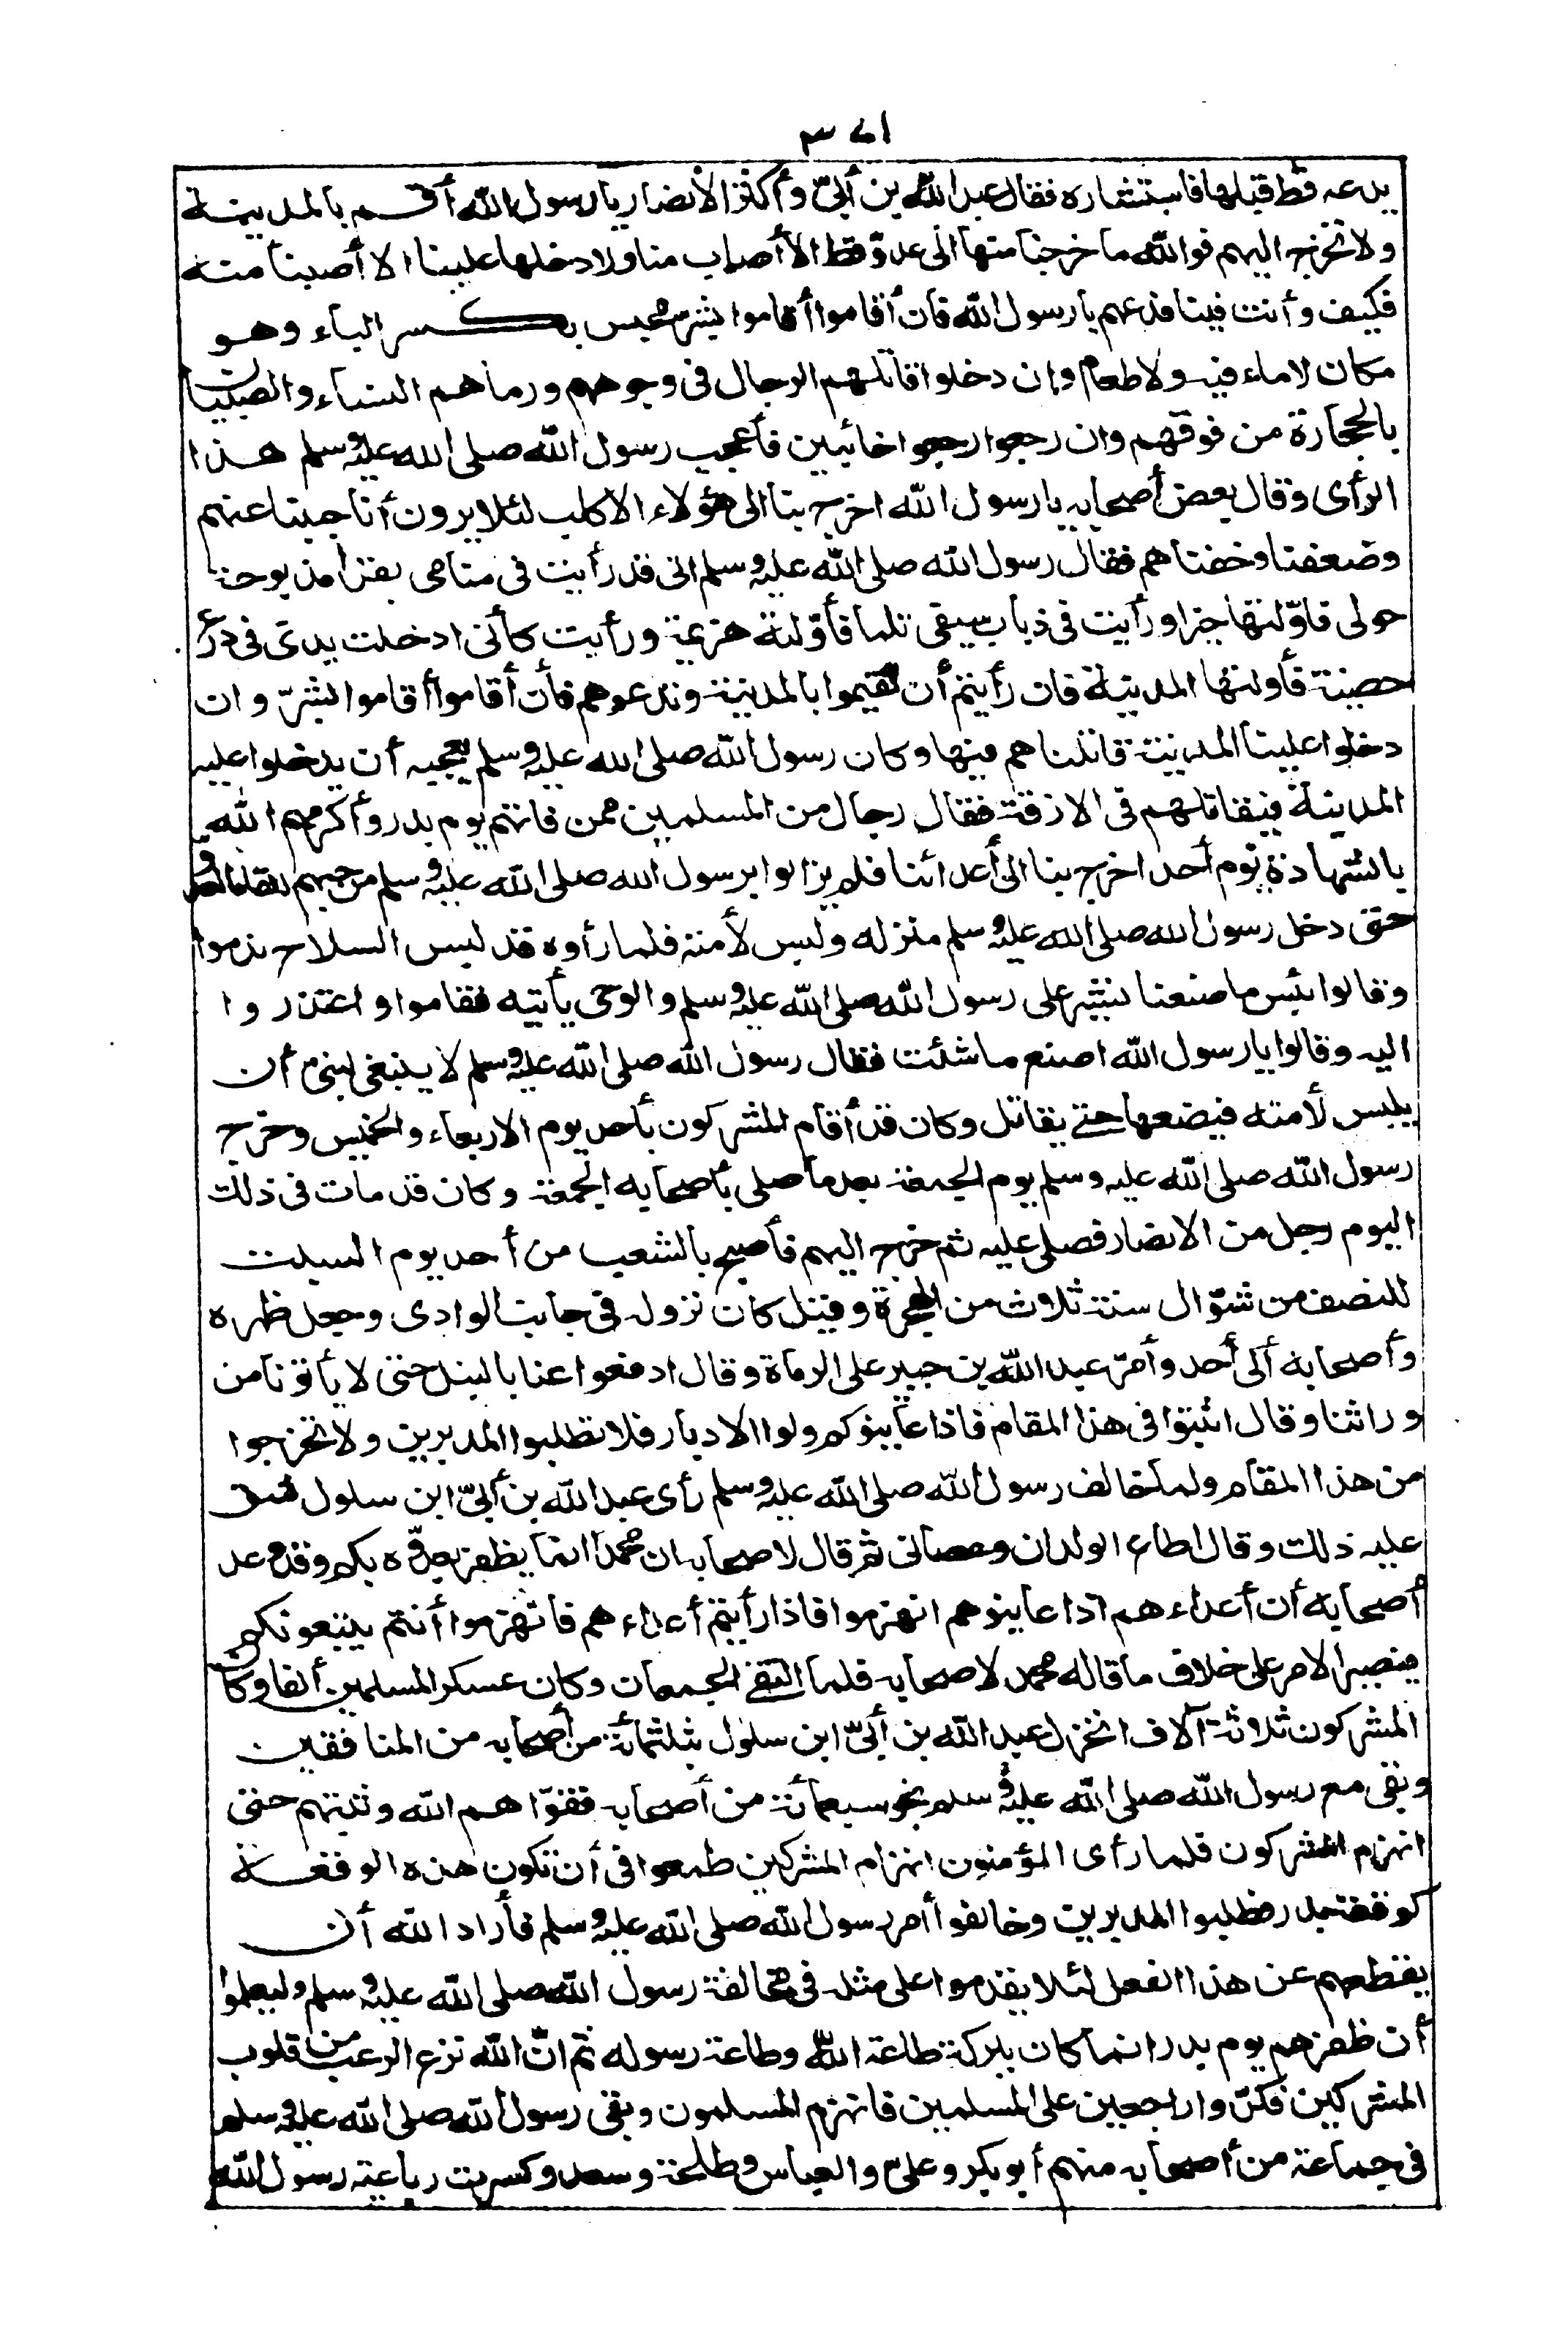 ٣٧١
يدعه قط قبلها فاستشاره فقال عبد الله بن أبيّ وأكثر الأنصار يا رسول الله أقم بالمدينة
ولا تخرج اليهم فوالله ما خرجنا منها الى عدوّ قط الا أصاب منا ولا دخلها علينا الا أصبنا منه
فكيف وأنت فينا فدعهم يا رسول الله فان أقاموا أقاموا بشرّ محبس بكسر الباء وهو
مكان لا ماء فيه ولا طعام وان دخلوا قاتلهم الرجال فى وجوههم ورماهم النساء والصبيان
بالحجارة من فوقهم وان رجعوا رجعوا خائبين فأعجب رسول الله صلى الله عليه وسلم هذا
الرأى وقال بعض أصحابه يا رسول الله اخرج بنا الى هؤلاء الاكلب لئلا يرون أنا جبنا عنهم
وضعفنا وخفناهم فقال رسول الله صلى الله عليه وسلم انى قد رأيت فى منامى بقرا مذبوحة
حولى فاوّلتها خيرا ورأيت فى ذباب سيفى ثلما فأوّلته هزيمة ورأيت كأنى ادخلت يدى فى درع
حصينة فأولتها المدينة فان رأيتم أن تقيموا بالمدينة وتدعوهم فأن أقاموا أقاموا بشرّ وان
دخلوا علينا المدينة قاتلناهم فيها وكان رسول الله صلى الله عليه وسلم يعجبه أن يدخلوا عليه
المدينة فيقاتلهم فى الازقة فقال رجال من المسلمين ممن فاتهم يوم بدر وأكرمهم الله
بالشهادة يوم أحد اخرج بنا الى أعدائنا فلم يزالوا برسول الله صلى الله عليه وسلم من حبهم للقاء العدوّ
حتى دخل رسول الله صلى الله عليه وسلم منزله ولبس لأمته فلما رأوه قد لبس السلاح ندموا
وقالوا بئس ما صنعنا نشير على رسول الله صلى الله عليه وسلم والوحى يأتيه فقاموا واعتذروا
اليه وقالوا يا رسول الله اصنع ما شئت فقال رسول الله صلى الله عليه وسلم لا ينبغى لنبىّ أن
يلبس لأمته فيضعها حتى يقاتل وكان قد أقام المشركون بأحد يوم الاربعاء والخميس وخرج
رسول الله صلى الله عليه وسلم يوم الجمعة بعد ما صلى بأصحابه الجمعة وكان قد مات فى ذلك
اليوم رجل من الانصار فصلى عليه ثم خرج اليهم فأصبح بالشعب من أحد يوم السبت
للنصف من شوّال سنة ثلاث من الهجرة وقيل كان نزوله فى جانب الوادى وجعل ظهره
وأصحابه الى أحد وأمّر عبد الله بن جبير على الرماة وقال ادفعوا عنا بالنبل حتى لا يأتونا من
ورائنا وقال اثبتوا فى هذا المقام فاذا عاينوكم ولوا الادبار فلا تطلبوا المدبرين ولا تخرجوا
من هذا المقام ولما خالف رسول الله صلى الله عليه وسلم رأى عبد الله بن أبيّ ابن سلول شق
عليه ذلك وقال اطاع الولدان وعصانى ثم قال لاصحابه ان محمدا انما يظفر بعدوّه بكم وقد وعد
أصحابه أن أعداءهم اذا عاينوهم انهزموا فاذا رأيتم أعداءهم فانهزموا أنتم يتبعونكم
فيصير الامر على خلاف ما قاله محمد لاصحابه فلما التقى الجمعان وكان عسكر المسلمين ألفا وكان
المشركون ثلاثة آلاف انخزل عبد الله بن أبيّ ابن سلول بثلثمائة من أصحابه من المنافقين
وبقى مع رسول الله صلى الله عليه وسلم نحو سبعمائة من أصحابه فقوّاهم الله وثبتهم حتى
انهزم المشركون فلما رأى المؤمنون انهزام المشركين طمعوا فى أن تكون هذه الوقعة
كوقعة بدر فطلبوا المدبرين وخالفوا أمر رسول الله صلى الله عليه وسلم فأراد الله أن
يقطعهم عن هذا الفعل لئلا يقدموا على مثله فى مخالفة رسول الله صلى الله عليه وسلم وليعلموا
أن ظفرهم يوم بدر انما كان ببركة طاعة الله وطاعة رسوله ثم انّ الله نزع الرعب من قلوب
المشركين فكرّوا راجعين على المسلمين فانهزم المسلمون وبقى رسول الله صلى الله عليه وسلم
فى جماعة من أصحابه منهم أبو بكر وعلىّ والعباس وطلحة وسعد وكسرت رباعية رسول الله